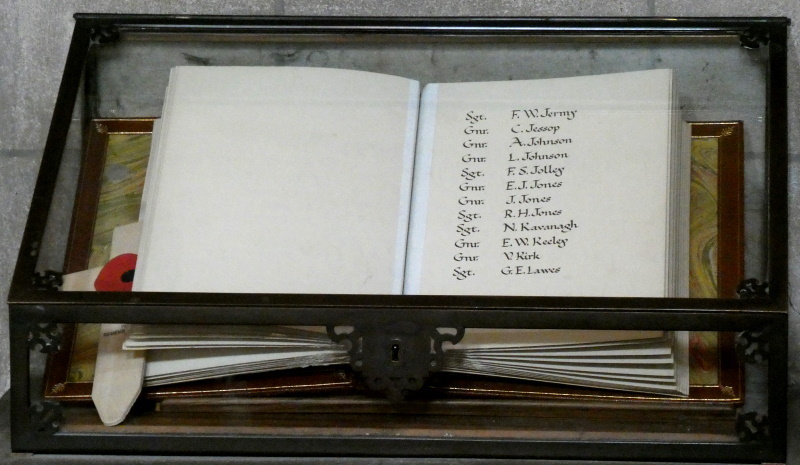 Sgt. F. W. Jermy
Gnr. C. Jessop
Gnr. A. Johnson
Gnr. L. Johnson
Sgt. F. S. Jolley
Gnr. E. J. Jones
Gnr. J. Jones
Sgt. R. H. Jones
Sgt. N. Kavanagh
Gnr. E. W. Keeley
Gnr. V. Kirk
Sgt. G. E. Lawes